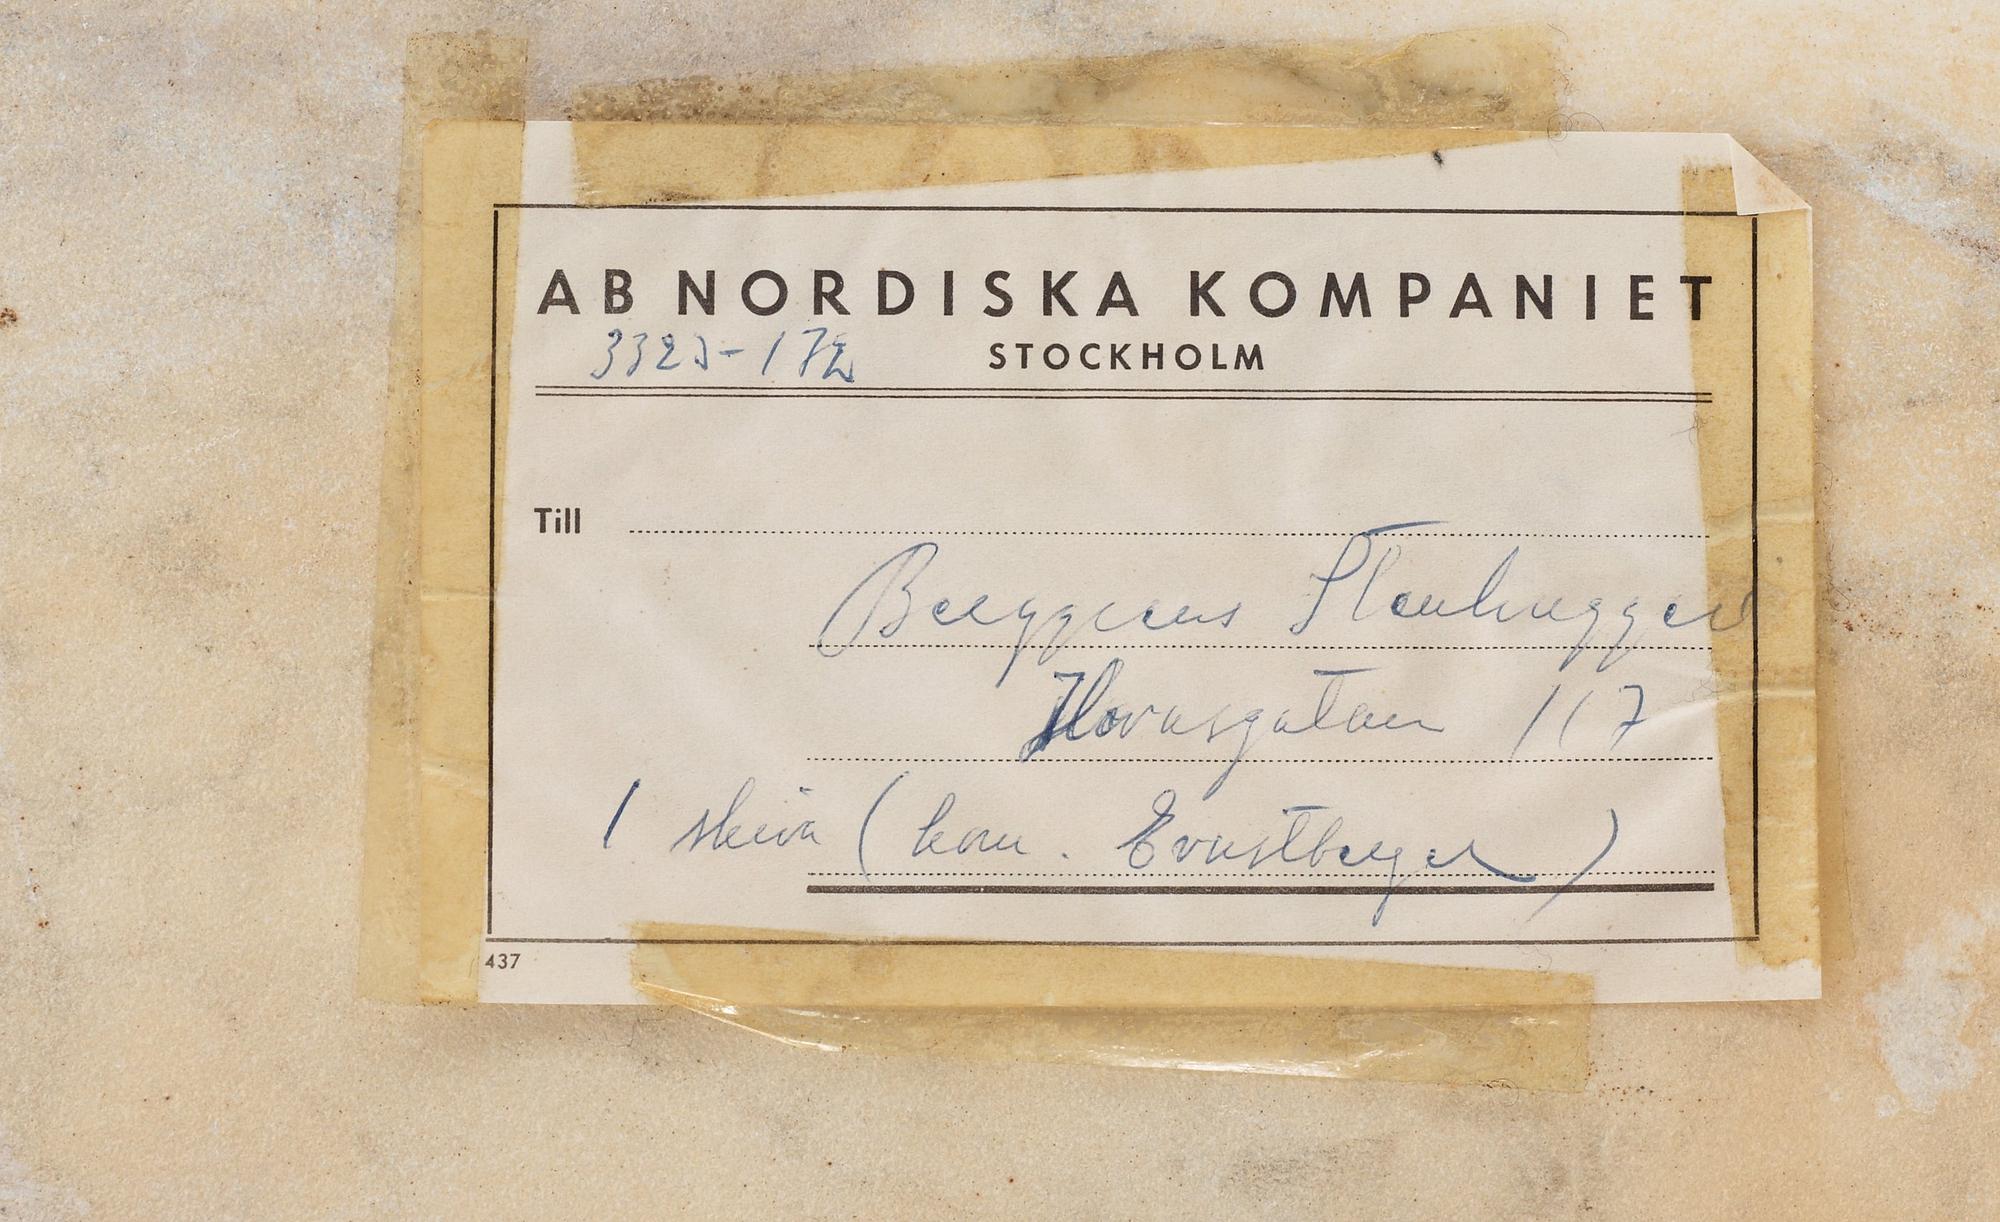 AB NORDISKA KOMPANIET
3325-172
STOCKHOLM
Till
Berggrens Stenhuggeri
Hornsgatan 117
1 skiva (kom. Ernstberger)
437